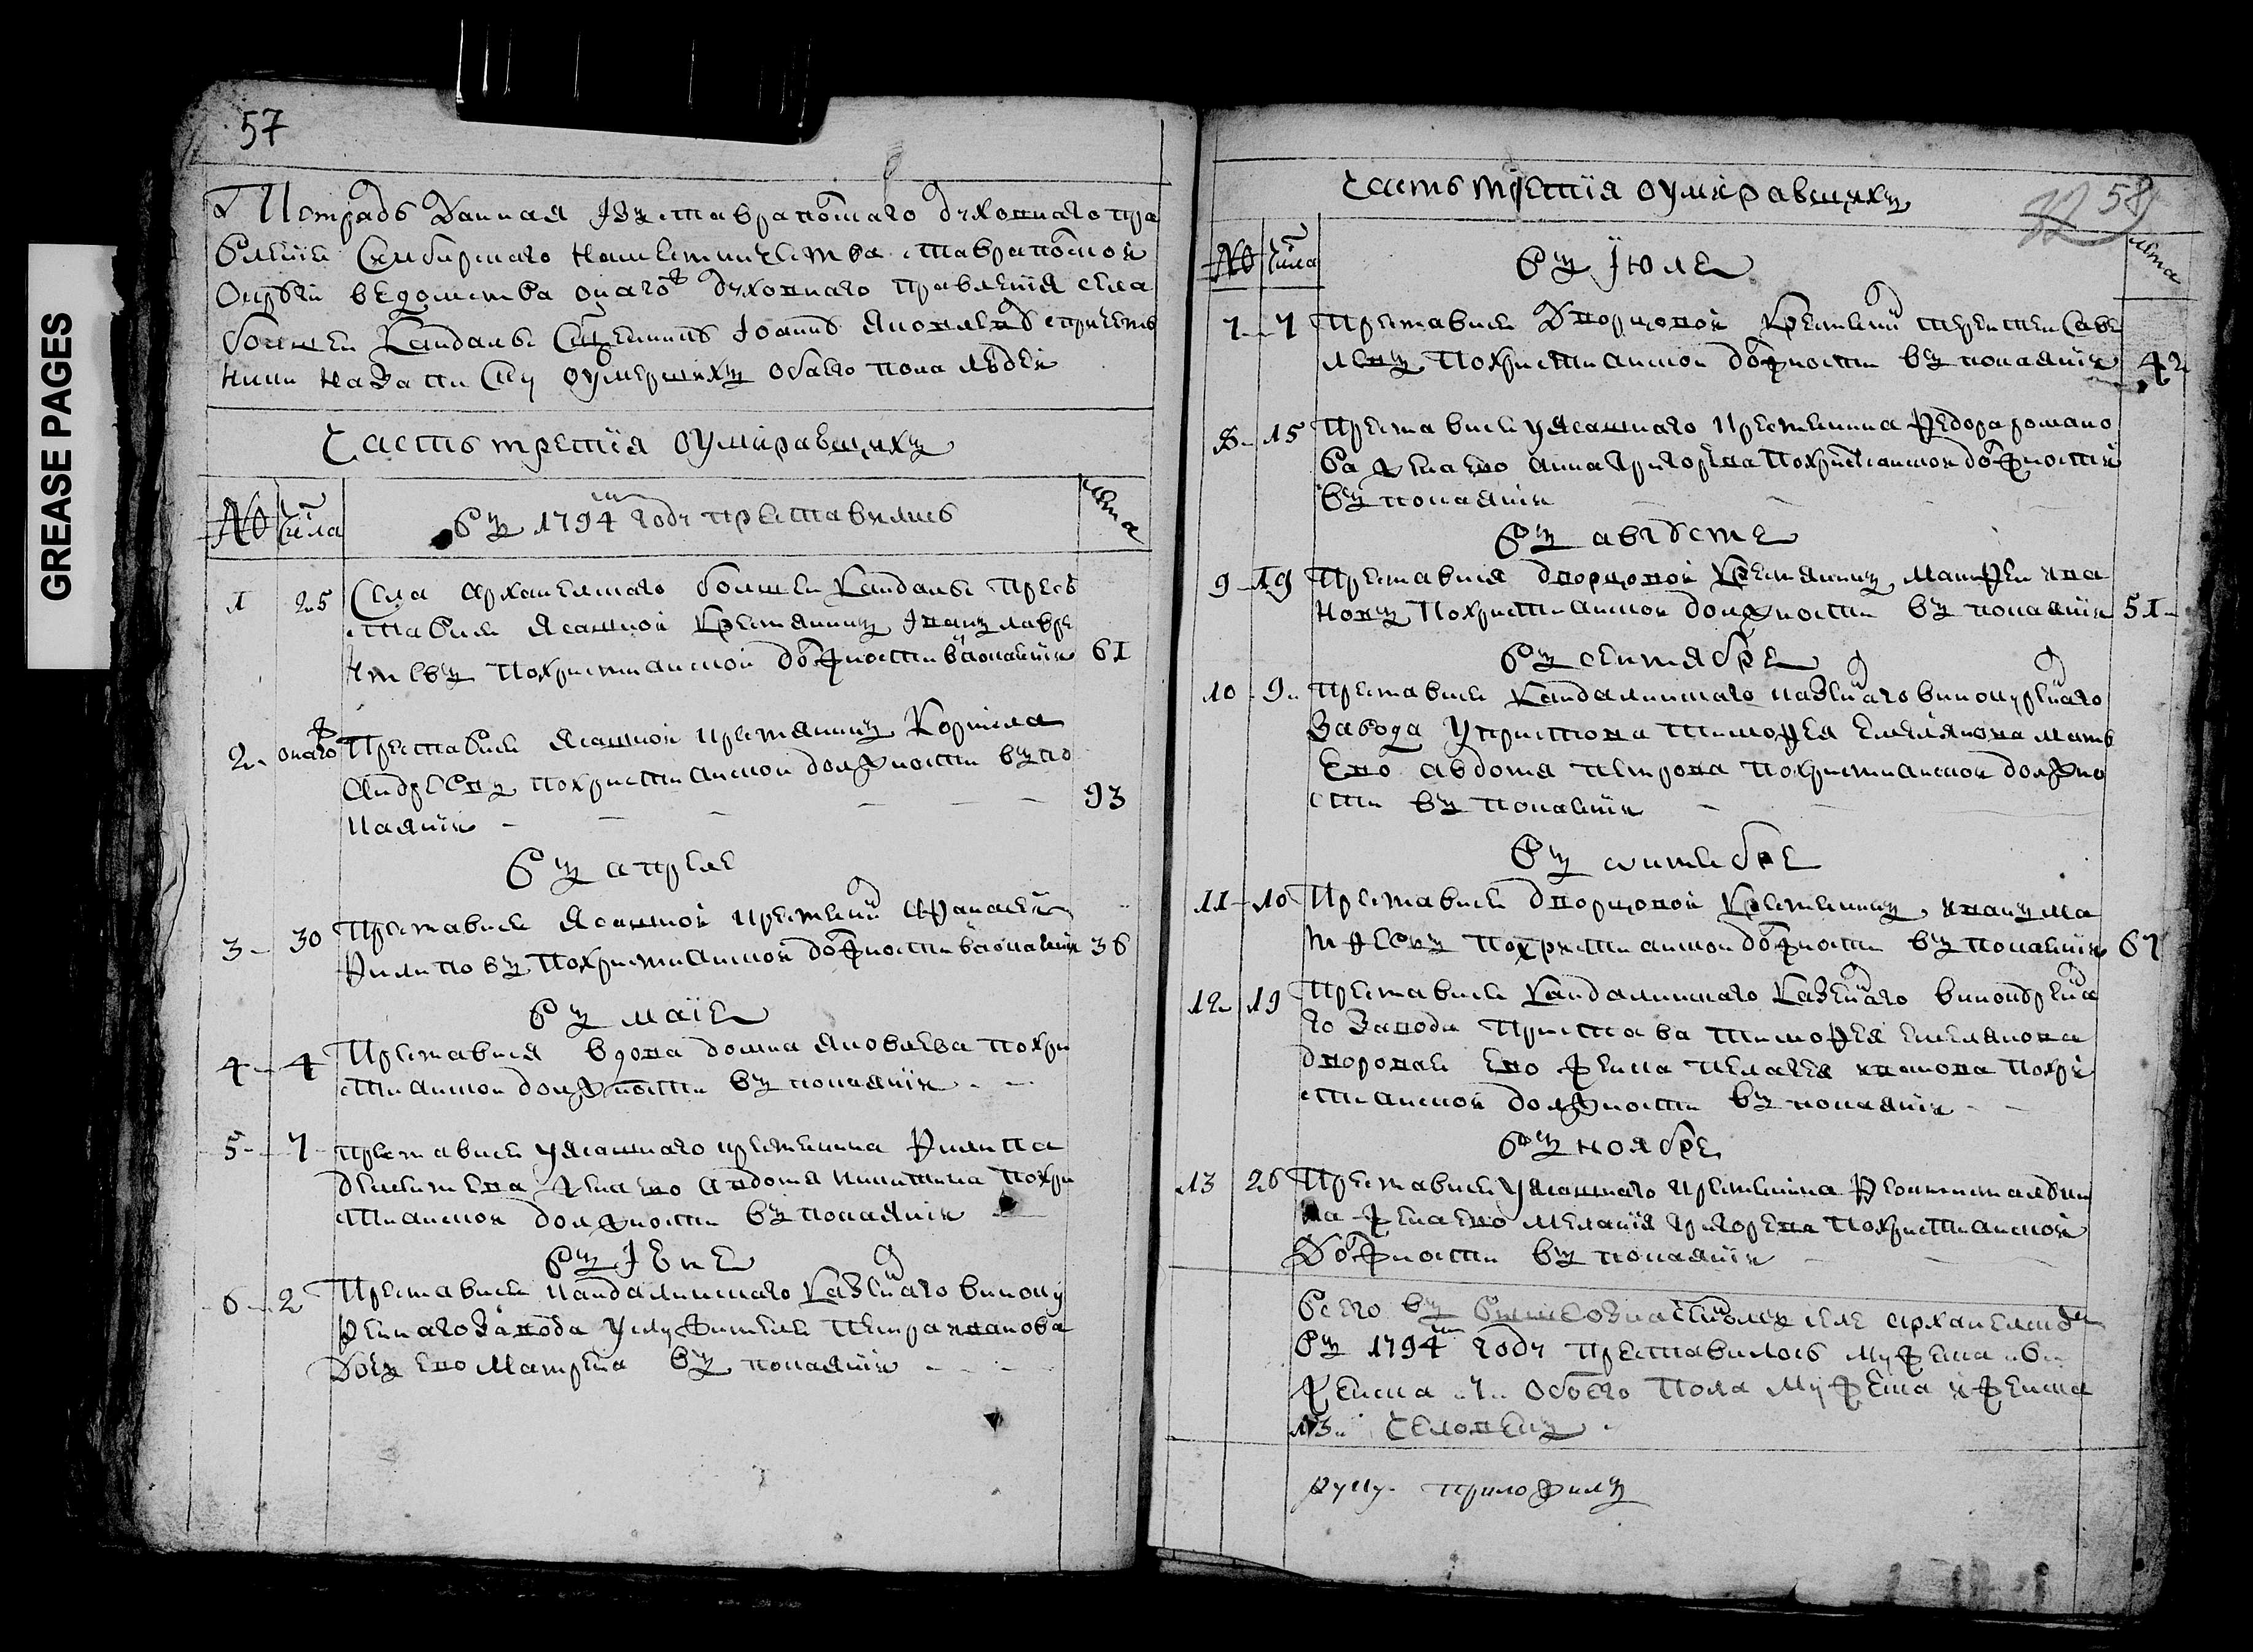 GREASE PAGES
57
Тетрадь данная Изъ ставрапольскаго духовнаго пра
вления Синбирскаго наместничества ставрапольской
округи ведомства онаго духовнаго правления села
болшеи Кандалы Священникъ Иоаннъ Яковлевъ спричетъ
ники на записку оумершихъ обаего пола людей
Часть третия оумиравшихъ
№ числа въ 1794м году преставились лета
1 25 Села архангелскаго болшеи Кандалы прес
ставися Ясашной Крестянинъ Иванъ лавре
нтьевъ похристианской должности впокаянии 61
2 онаго преставися Ясашной крестянинъ Корнила
Андреевъ похристианской должности въ по
каянии 93
въ апреле
3 30 преставися Ясашной крестянинъ Афанасей
Филиповъ похристианской должности впокаянии 36
въ маие
4 4 преставися вдова домна Яковлева похри
стианской должности въ покаянии
5 7 преставися уясашнаго крестянина Филипа
жена ево авдотя никитина похри
стианской должности въ покаянии
въ Июне
6 2 преставися кандалинскаго Казеннаго виноку
реннаго завода у служителя петра иванова
дочь ево матрена въ покаянии
Часть третия оумиравшихъ
32 58
№ числа въ Июле лета
7 7 преставися дворцовой Крестянинъ терентей Саве
левъ похристианской должности въ покаянии 42
8 15 преставися уясашнаго крестянина Федора романо
ва жена ево анна григорева похристианской должности
въ покаянии
въ августе
9 19 преставися дворцовой Крестянинъ матфей ива
новъ похристианской должности въ покаянии 51
въ сентябре
10 9 преставися Кандалинскаго казеннаго винокуреннаго
завода упристава тимофея емелянова мать
ево авдотя петрова похристианской должно
сти въ покаянии
въ октебре
11 10 преставися дворцовой Крестянинъ иванъ ма
тфеевъ похристианской должности въ покаянии 67
12 19 преставися Кандалинскаго Казеннаго винокуренна
го завода пристава тимофея емелянова
дворовая ево женка пелагея иванова похри
стианской должности въ покаянии
въ ноябре
13 26 преставися уясашнаго крестянина
жена ево мелания григорева похристианской
должности въ покаянии
всего въ вышеозначенномъ селе архангелском
въ 1794м году преставилось мужеска 6
женска 7 обоего пола мужеска и женска
13 человекъ
руку приложилъ